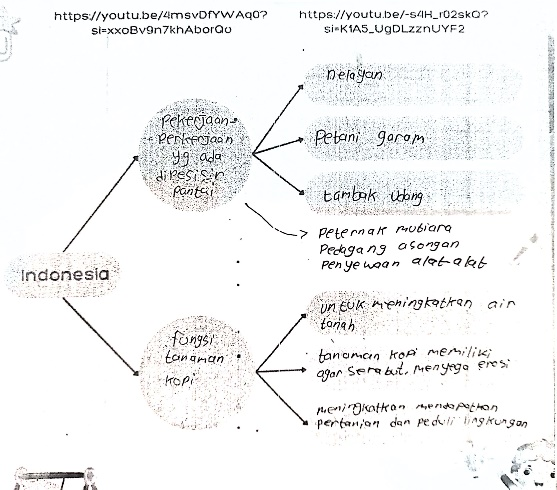 https://youtu.be/4msvDfYWAq0?
si=xxoBv9n7khAborQo
https://youtu.be/-s4H_r02skQ?
si=K1A5_UgDLzznUYF2
Pekerjaan-
Perkerjaan
yg ada
dipesisir
pantai
nelayan
Petani garam
tambak udang
Peternak mutiara
Pedagang asongan
Penyewaan alat-alat
Indonesia
fungsi
tanaman
kopi
untuk meningkatkan air
tanah
tanaman kopi memiliki
agar serabut, menyega erosi
meningkatkan mendapatkan
pertanian dan peduli lingkungan